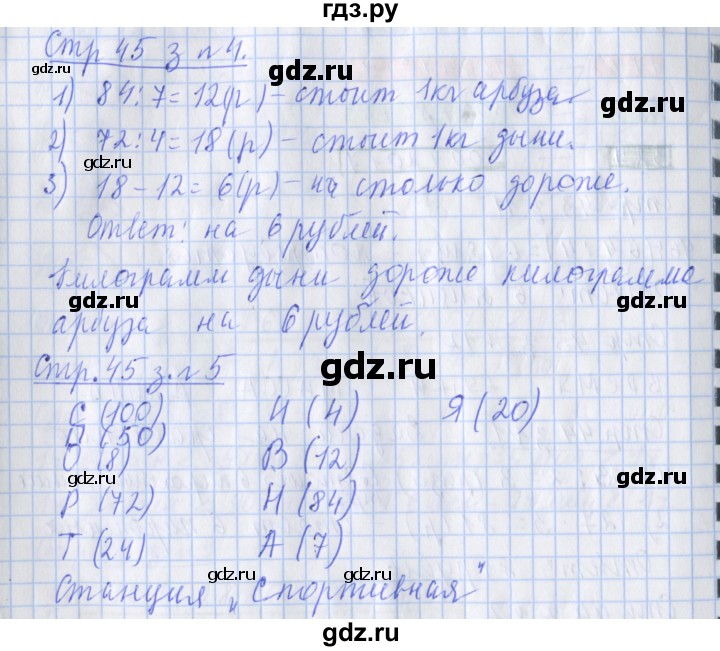 гдз.ру
Стр 45 з №4.
gdz.ru
1) 84:7=12(р)-стоит 1кг арбуза.
gdz.ru
gdz.ru
2) 72:4=18(р)-стоит 1кг дыни.
gdz.ru
3) 18-12=6(р)-на столько дороже.
gdz.ru
Ответ: на 6 рублей.
Килограмм дыни дороже килограмма
gdz.ru
gdz.ru
арбуза на 6 рублей.
gdz.ru
Стр. 45 з. №5
gdz.ru
С (100) И (4) Я (20)
gdz.ru
П (50)
О (8) В (12)
gdz.ru
gdz.ru
Р (72) Н (84)
gdz.ru
Т (24) А (7)
gdz.ru
gdz.ru
Станция „Спортивная"
gdz.ru
gdz.ru